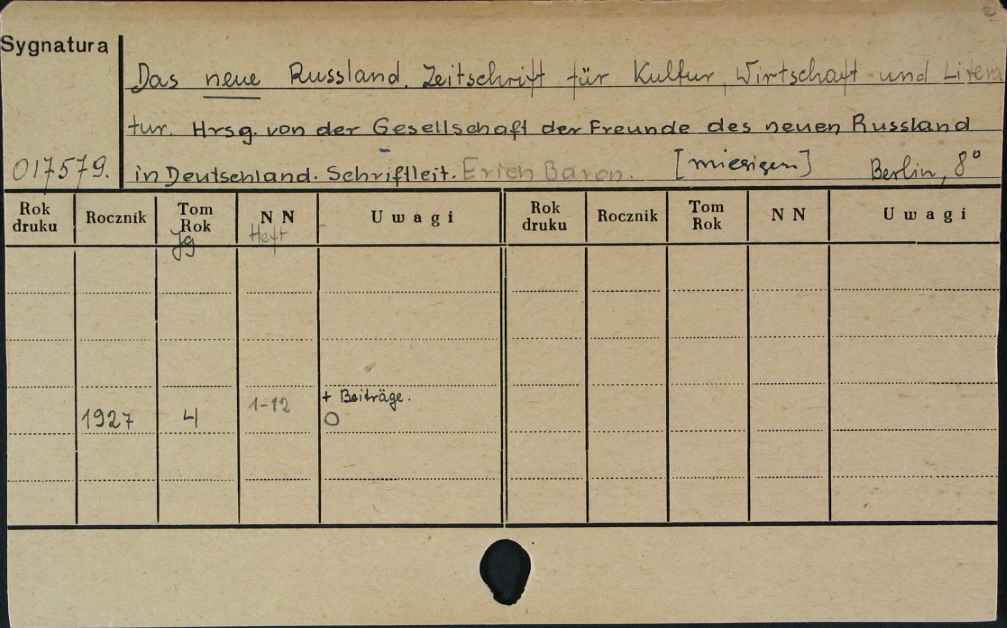 Sygnatura
Das neue Russland. Zeitschrift für Kultur, Wirtschaft und Litera
tur. Hrsg. von der Gesellschaft der Freunde des neuen Russland
017579. in Deutschland. Schriftleit. Erich Baron. [miesięcz.] Berlin, 8°
Rok druku Rocznik Tom Rok Jg N N Heft Uwagi Rok druku Rocznik Tom Rok N N Uwagi
1927 4 1-12 + Beiträge.
O